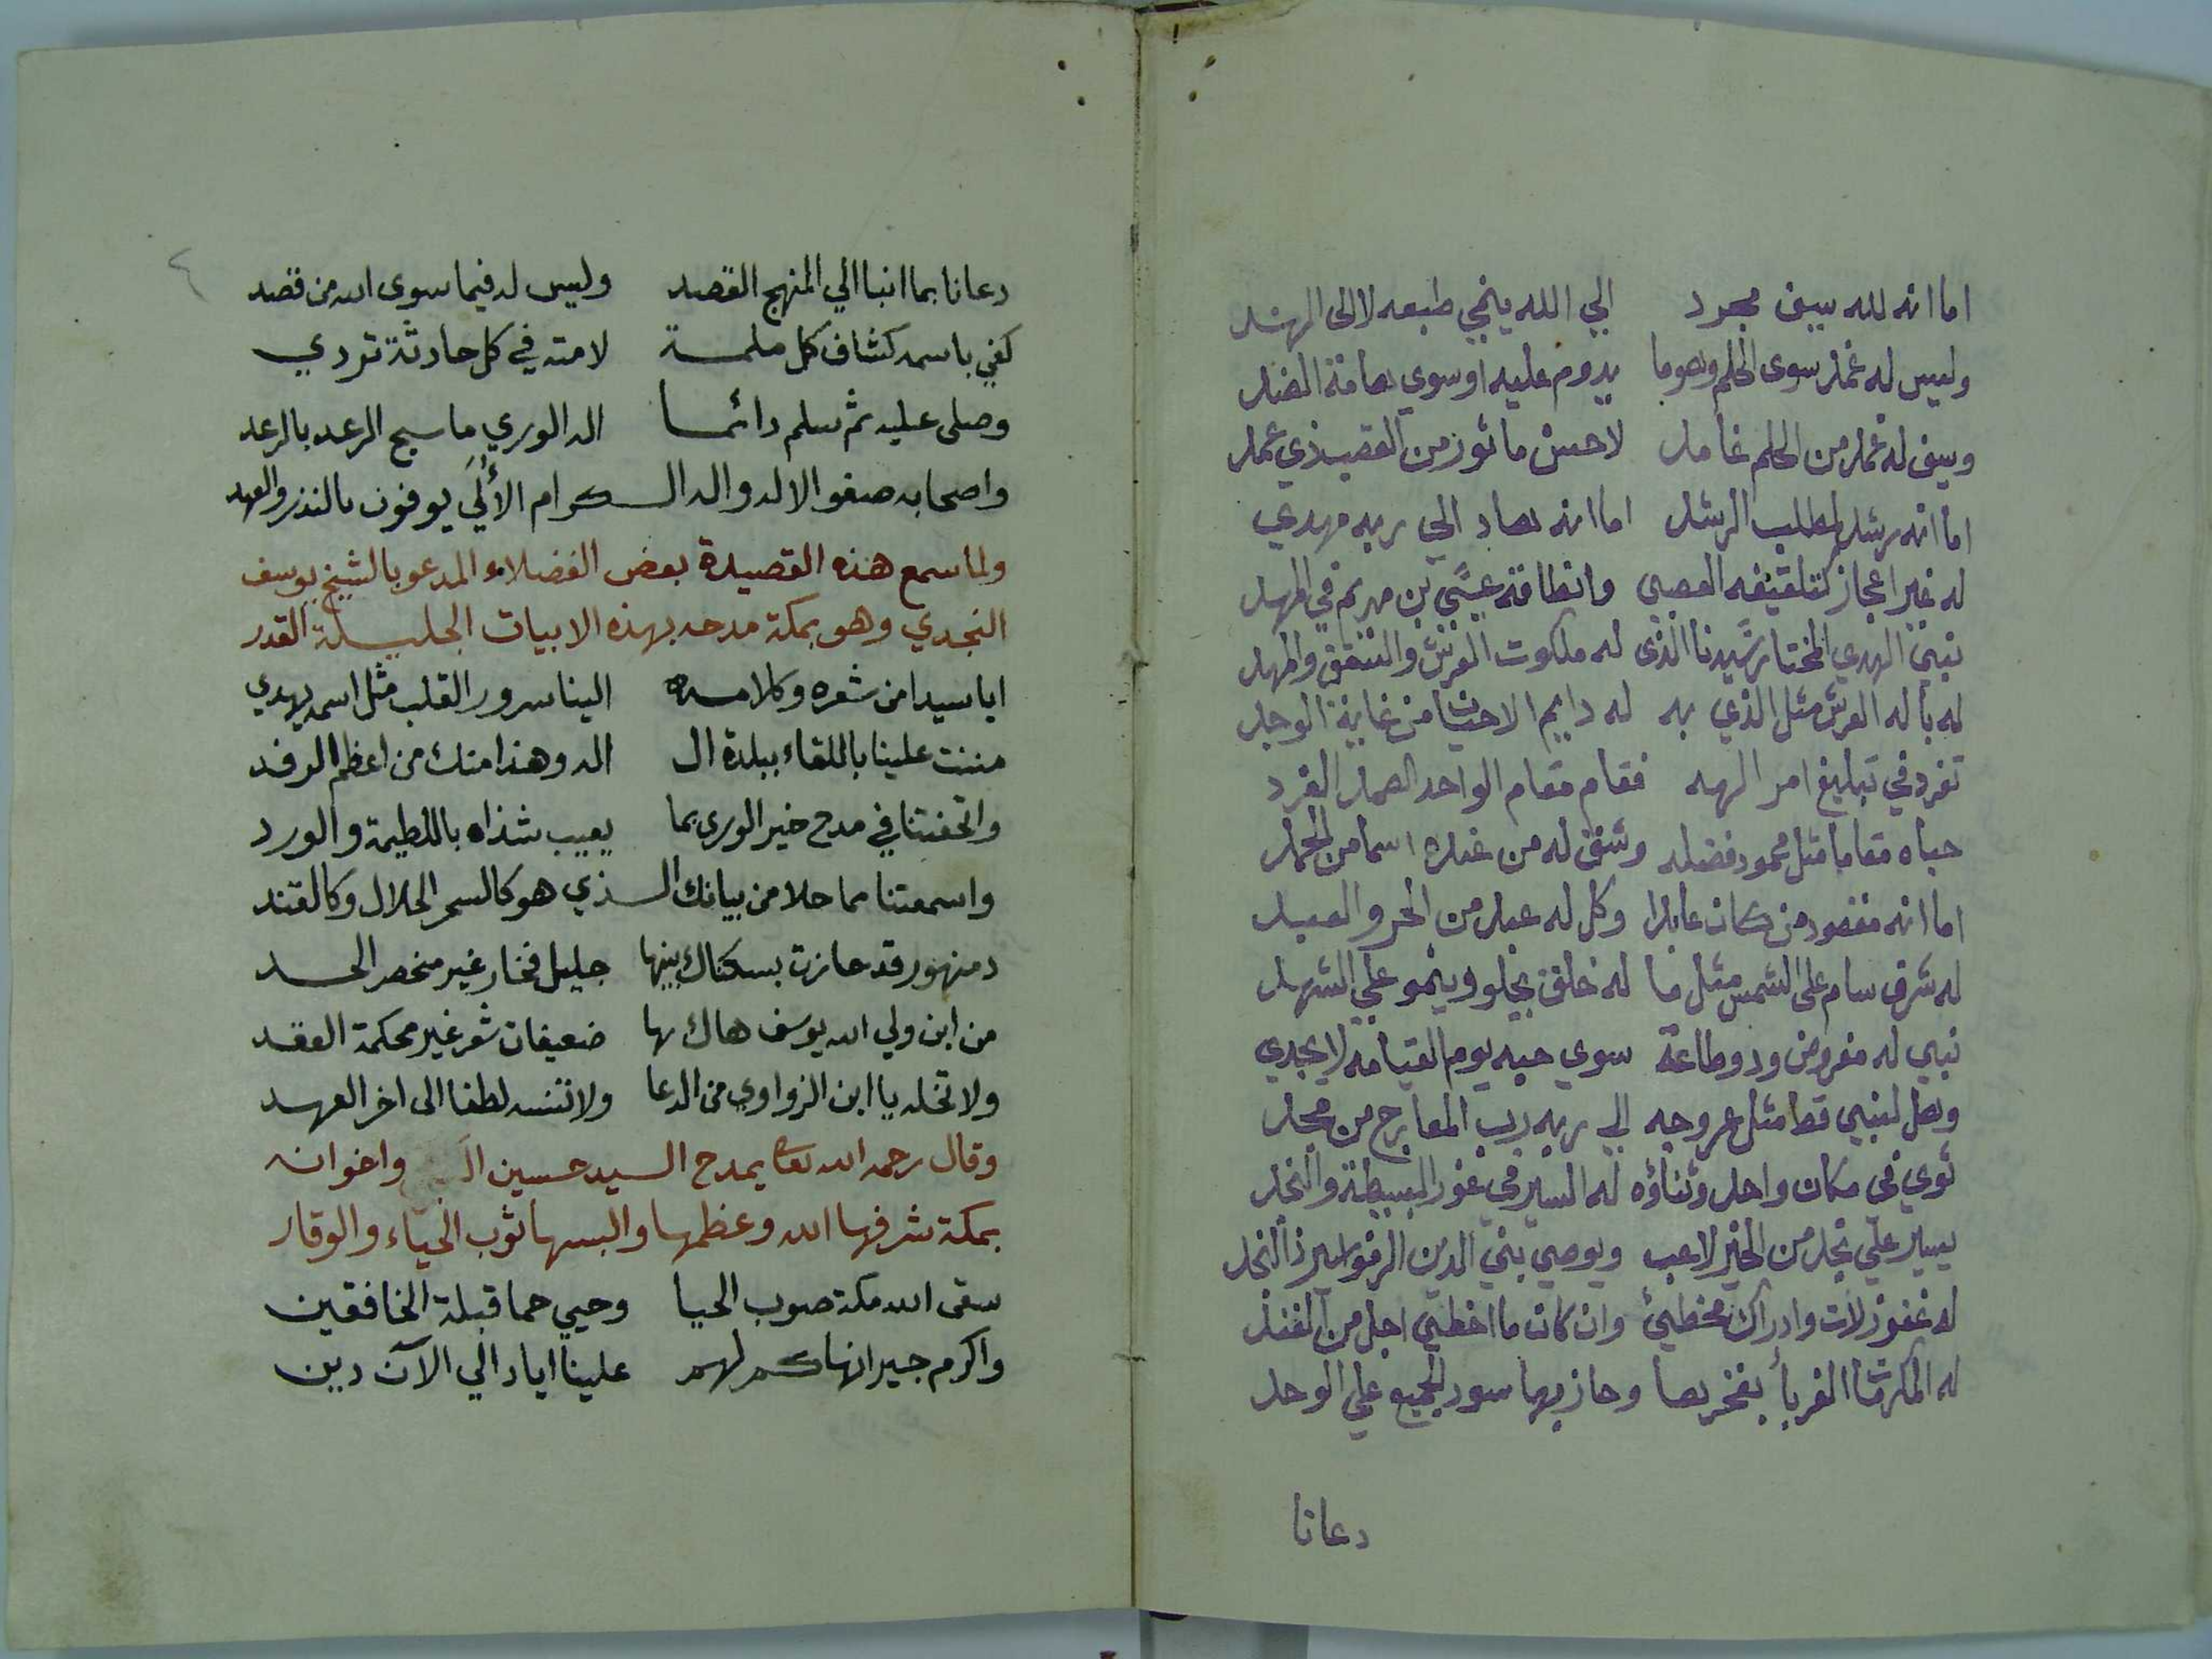 اما انه لله سيف مجرد الي الله ينجي طبعه لا الى الهند
وليس له غمد سوى الحلم وهوما يدوم عليه او سوي هامة الضد
وسيف له غمد من الحلم غامد لاحسن ماثور من القضب ذي غمد
اما انه رشد لمطلب الرشد اما انه هاد الي ربه مهدي
له غير اعجاز كتلقيفه العصي وانطاقه عيسي بن مريم في المهد
نبي الهدي المختار سيدنا الذى له ملكوت العرش والشقق والمهد
له باله العرش مثل الذي به له دايم الاحيان من غاية الوجد
تفرد في تبليغ امر الهه فقام مقام الواحد الصمد الفرد
حباه مقاما مثل محمود فضله وشق له من عنده اسما من الحمد
اما انه مقصود من كان عابدا وكل له عبد من الحر والعبد
له شرف سام على الشمس مثل ما له خلق يحلو وينمو علي الشهد
نبي له مفروض ود وطاعة سوي حبه يوم القيامه لا يجدي
وهل لنبي قط مثل عروجه الي ربه رب المعارج من مجد
ثوي في مكان واحد وثناؤه له السير في غور البسيطة والنجد
يسير علي نجد من الخير لاحب ويوصي بني الدين القويم بذا النجد
له غفو زلات وادراك مخطئ وان كان ما اخطي اجل من الفند
له المكرمات الغر باء بفخرها وحاز بها سود الجميع علي الوحد
دعانا
دعانا بما انبا الي المنهج القصد وليس له فيما سوى الله من قصد
كفي باسمه كشاف كل ملمة لامته في كل حادثة تردي
وصلى عليه ثم سلم دائما اله الوري ما سبح الرعد بالرعد
واصحابه صفو الاله واله الكرام الألي يوفون بالنذر والعهد
ولما سمع هذه القصيدة بعض الفضلاء المدعو بالشيخ يوسف
النجدي وهو بمكة مدحه بهذه الابيات الجليلة القدر
ايا سيدا من شعره وكلامه الينا سرور القلب مثل اسمه يهدي
مننت علينا باللقاء ببلدة ال اله وهذا منك من اعظم الرفد
واتحفتنا في مدح خير الورى بما يعيب شذاه باللطيمة والورد
واسمعتنا مما حلا من بيانك الذي هو كالسحر الحلال وكالقند
دمنهور قد حازت بسكناك بينها جليل فخار غير منحصر الحد
من ابن ولي الله يوسف هاك ها ضعيفات شعر غير محكمة العقد
ولا تخله يا ابن الزواوي من الدعا ولا تنسه لطفا الى اخر العهد
وقال رحمه الله تعالى يمدح السيد حسين واخوانه
بمكة شرفها الله وعظمها والبسها ثوب الحياء والوقار
سقى الله مكة صوب الحيا وحيي حما قبلة الخافقين
واكرم جيرانها كم لهم علينا اياد الي الآن دين